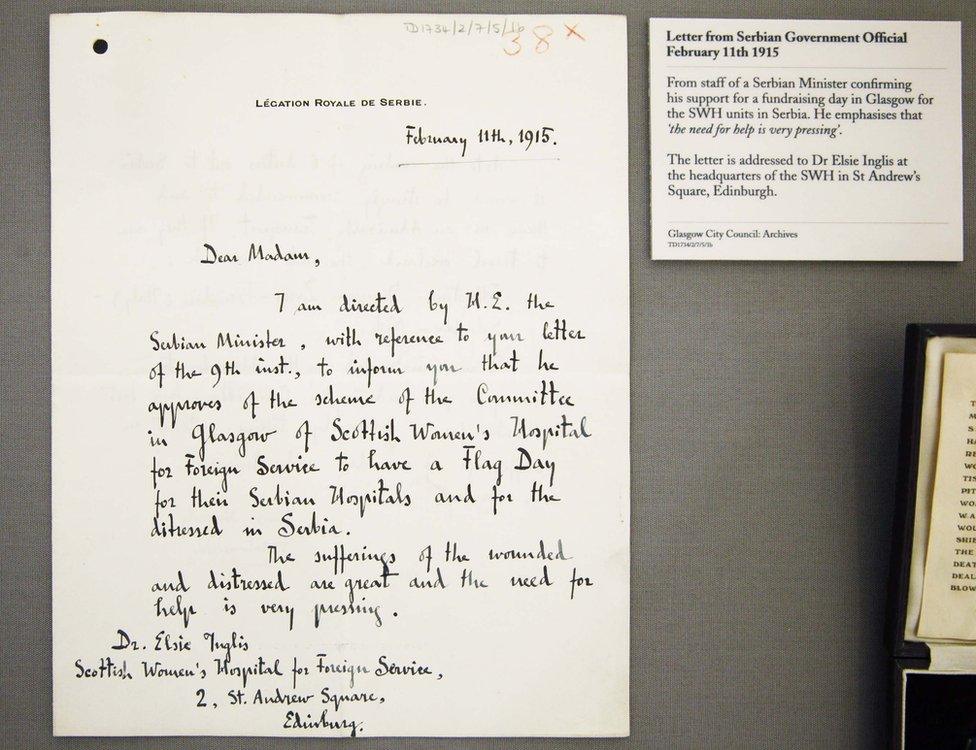 TD1734/2/7/5/1b
38 x
LÉGATION ROYALE DE SERBIE.
February 11th, 1915.
Dear Madam,
I am directed by H.E. the
Serbian Minister, with reference to your letter
of the 9th inst., to inform you that he
approves of the scheme of the Committee
in Glasgow of Scottish Women's Hospital
for Foreign Service to have a Flag Day
for their Serbian Hospitals and for the
ditressed in Serbia.
The sufferings of the wounded
and distressed are great and the need for
help is very pressing.
Dr. Elsie Inglis
Scottish Women's Hospital for Foreign Service,
2, St. Andrew Square,
Edinburg.
Letter from Serbian Government Official
February 11th 1915
From staff of a Serbian Minister confirming
his support for a fundraising day in Glasgow for
the SWH units in Serbia. He emphasises that
'the need for help is very pressing'.
The letter is addressed to Dr Elsie Inglis at
the headquarters of the SWH in St Andrew's
Square, Edinburgh.
Glasgow City Council: Archives
TD1734/2/7/5/1b